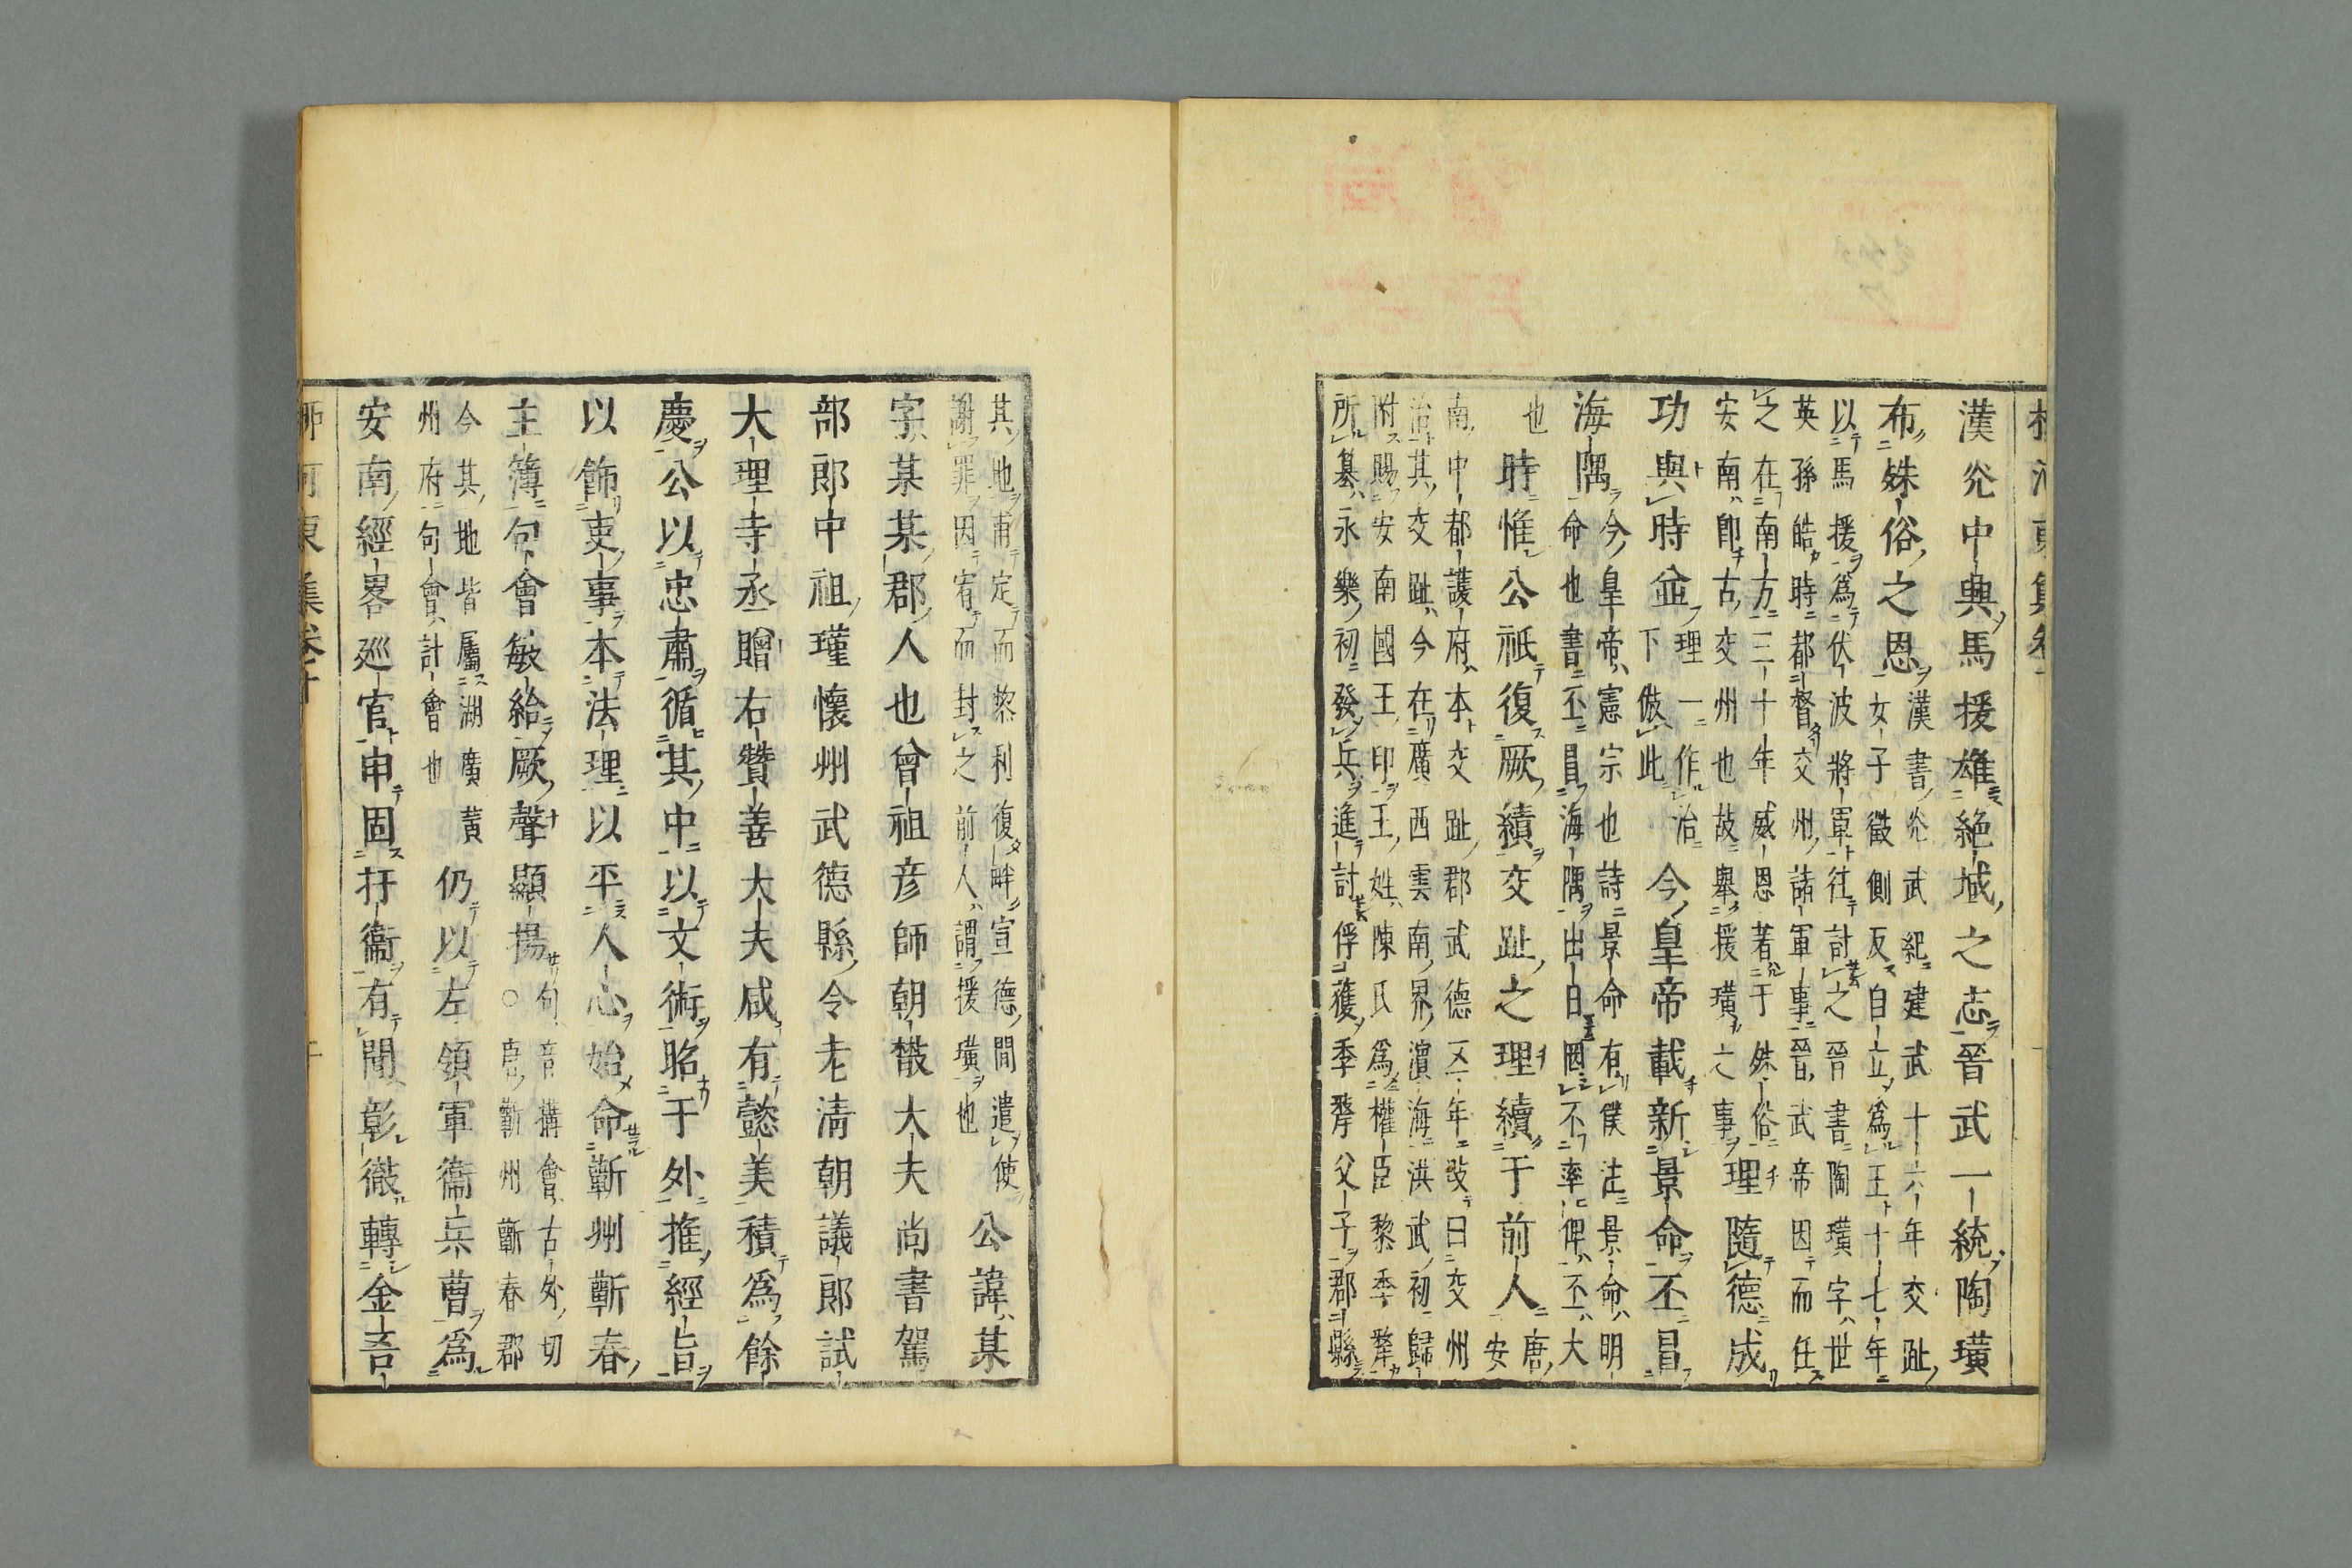 漢光中興馬援雄絶域之志晉武一統陶璜
布殊俗之恩
漢書光武紀建武十六年交趾
女子徴側反自立爲王十七年
以馬援爲伏波將軍往討之晉書陶璜字世
英孫皓時都督交州諸軍事晉武帝因而任
之在南方三十年威恩著于殊俗
安南即古交州也故舉援璜之事
理隨德成
功與時並
理一作治
下倣此
今皇帝載新景命丕冒
海隅
今皇帝憲宗也詩景命有僕注景命明
命也書丕冒海隅出日罔不率俾丕大
也
時惟公祇復厥績交趾之理續于前人
唐安
南中都護府本交趾郡武德五年改曰交州
治其交趾今在廣西雲南界濱海洪武初歸
附賜安南國王印王姓陳氏爲權臣黎季犛
所簒永樂初發兵進討俘獲季犛父子郡縣
其地甫定而黎利復畔宣德間遣使
謝罪因宥而封之前人謂援璜也
公諱某
字某某郡人也曾祖彦師朝散大夫尚書駕
部郎中祖瑾懷州武德縣令考清朝議郎試
大理寺丞贈右賛善大夫咸有懿美積爲餘
慶公以忠肅循其中以文術昭于外推經旨
以飾吏事本法理以平人心始命蘄州蘄春
主簿句會敏給厥聲顯揚
句音搆會古外切
○唐蘄州蘄春郡
今其地皆屬湖廣黄
州府句會計會也
仍以左領軍衛兵曹爲
安南經畧廵官申固扞衛有聞彰徹轉金吾
柳河東集卷十